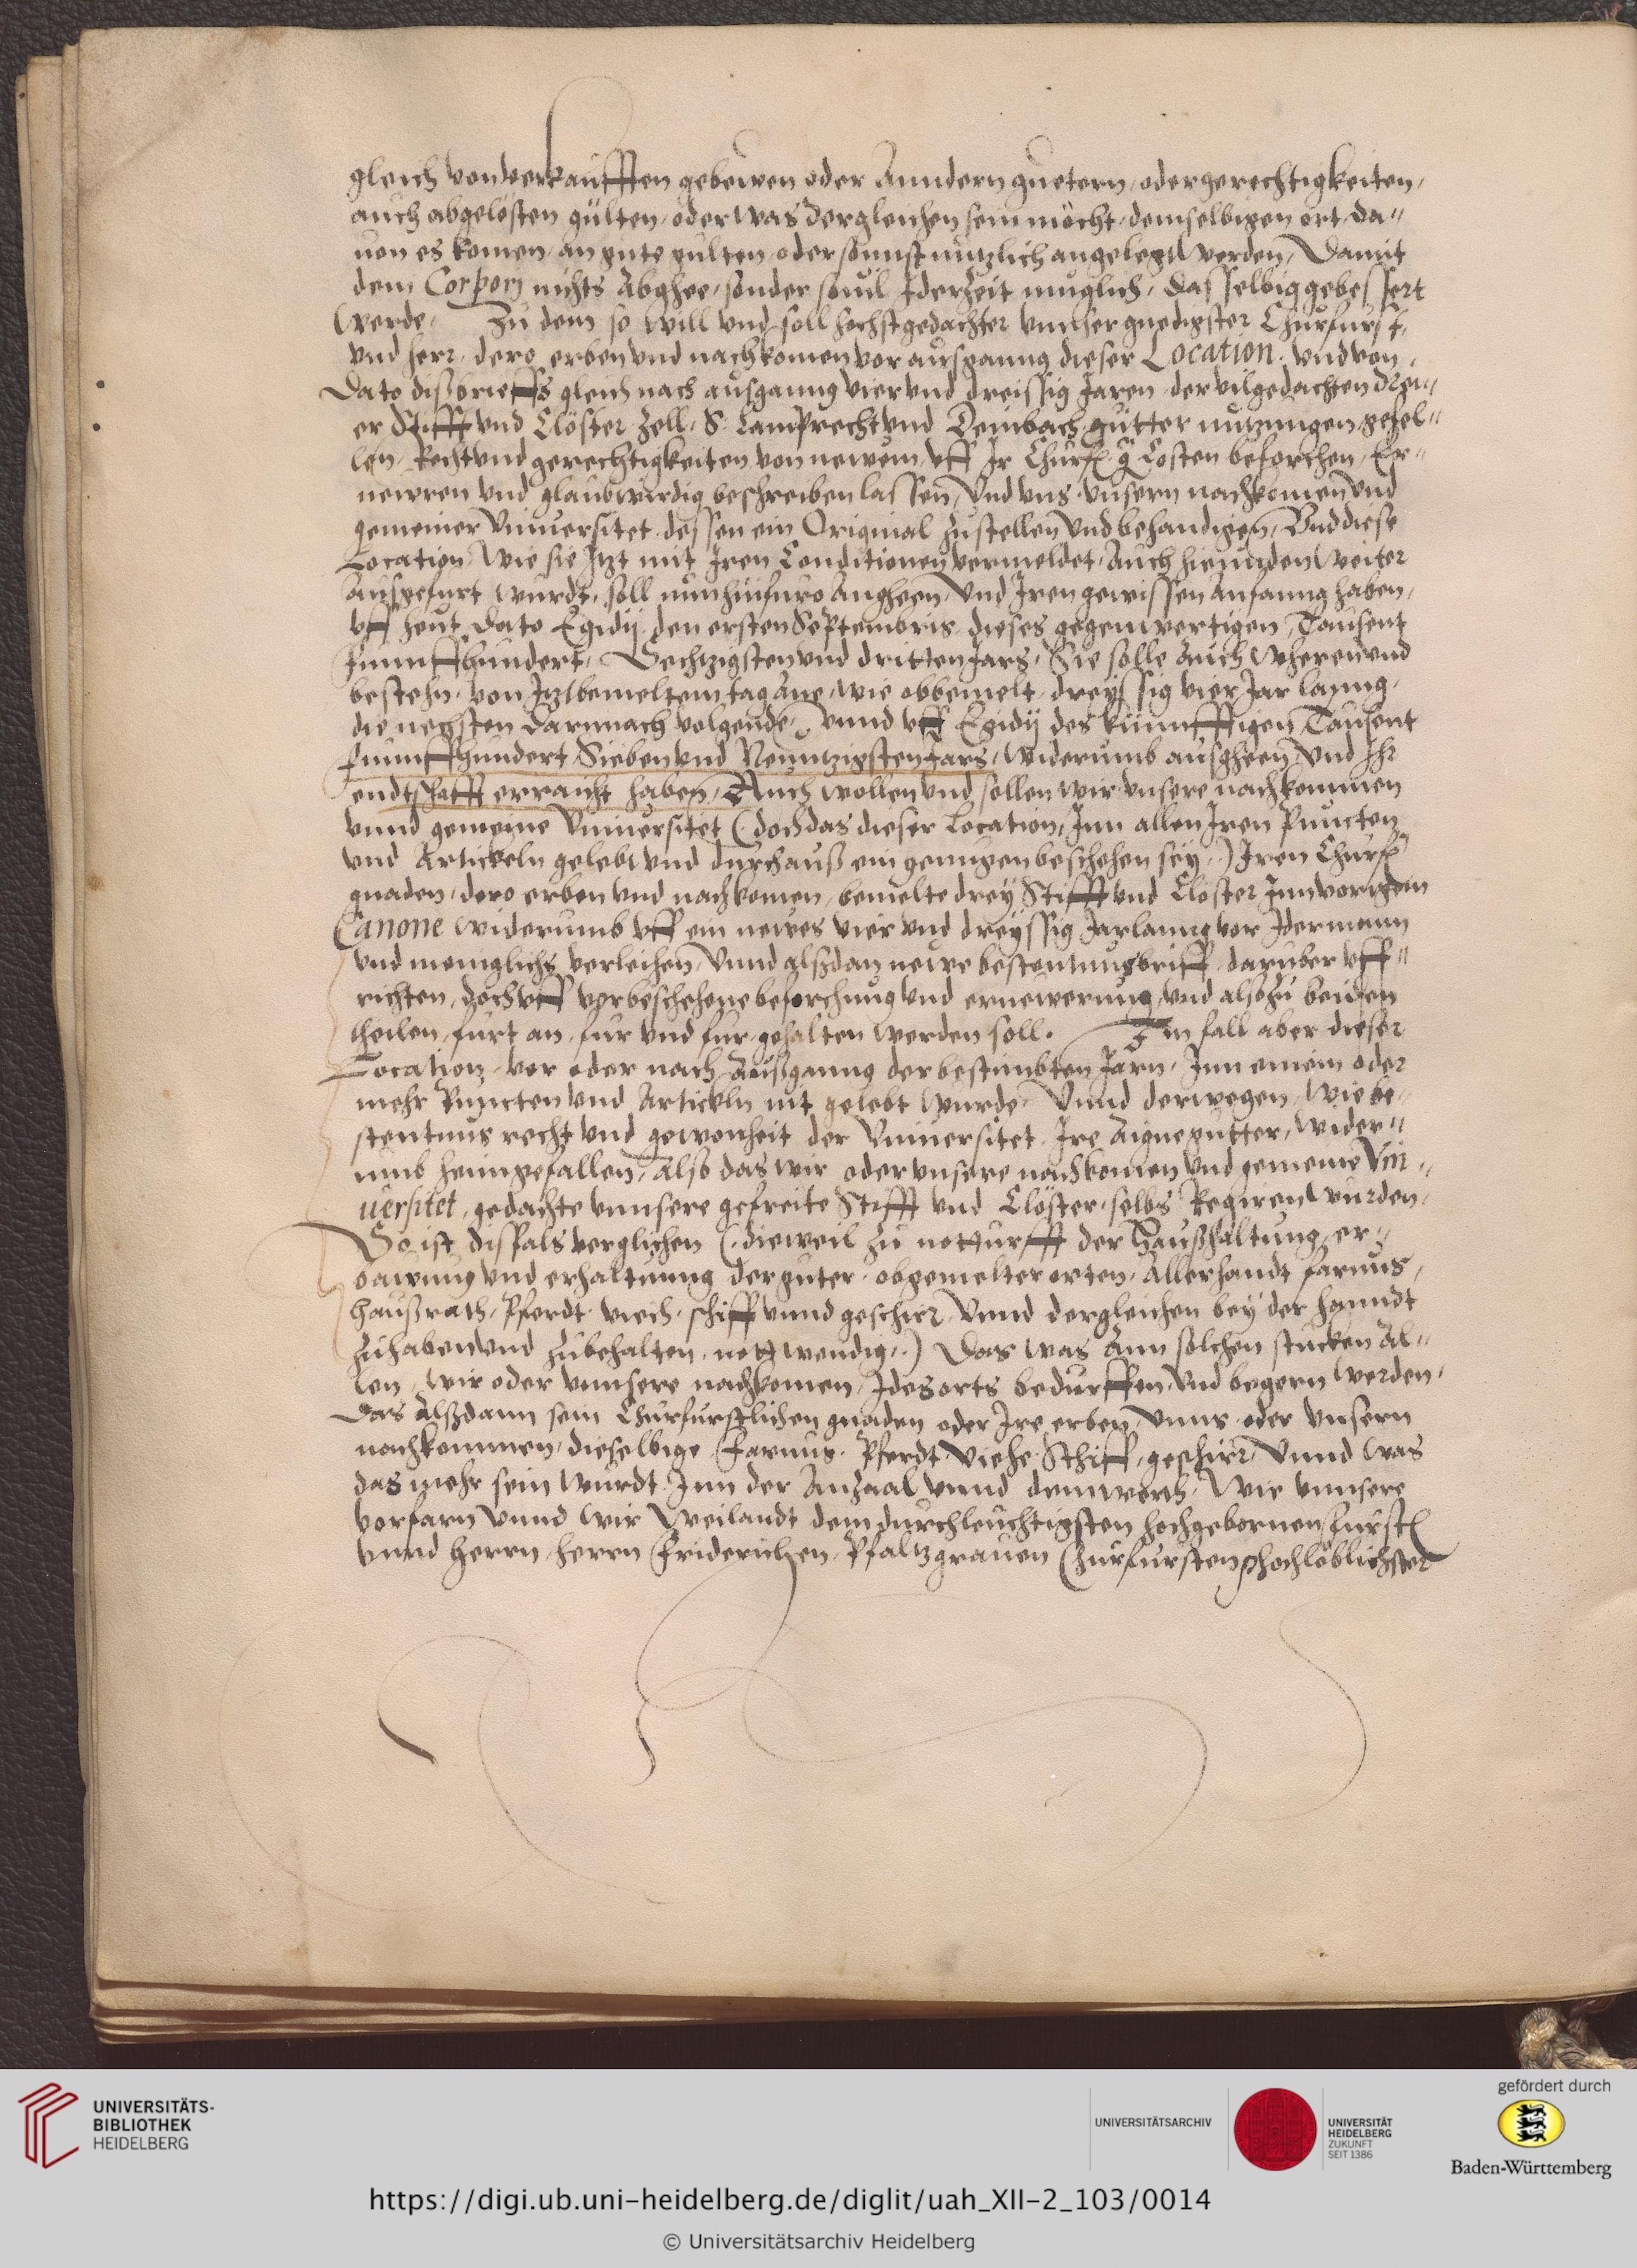 gleich von verkaufften gebewen oder Anndern guetern, oder gerechtigkeiten,
auch abgelösten gülten, oder was dergleichen sein möcht, demselbigen ort, da"
uon es komen, an gute gulten, oder sounst nutzlich angelegt werden, Damit
dem Corporj nichts Abghee, sonder souil Jderzeit muglich, dasselbig gebessert
Werde. Zu dem so will vnd soll hochstgedachter vnnser gnedigster Churfurst,
vnd herr, dero erben vnd nachkomen vor ausganng dieser Location, vnd von
Dato dißbrieffs gleich nach ausganng vier vnd dreissig Jaren der vilgedachten drei"
er Stifft vnd Clöster Zell, S. Lamprecht vnd Deimbach gutter nutzungen, gefel"
len, Recht vnd gerechtigkeiten von newem, vff Jr Churf. g. Costen beforchen, Er"
newren vnd glaubwirdig beschreiben lassen, vnd vns, vnsern nachkomen vnd
gemeiner Vniuersitet, dessen ein Original zustellen vnd behandigen, Vnd diese
Location, Wie sie Jtzt mit Jren Conditionen vermeldet, Auch hieunden weiter
Ausgefurt wurdt, soll nunhinfuro Angheen, vnd Jren gewissen Anfanng haben,
vff heut, Dato Egidij, den ersten Septembris, dieses gegenwertigen, Tausent
Funnffhundert, Sechtzigsten vnd dritten Jars, Sie solle Auch wheren vnd
bestehn, von Jtztbemeltem tag Ane, wie obbemelt, dreyssig vier Jar lanng,
die nechsten Darnnach volgende, vnnd vff Egidij des kunnfftigen Tausent
funnffhundert Sieben vnd Neuntzigsten Jars, widerumb ausgheen, vnd Jhr
endtschafft erraicht haben, Auch wollen vnd sollen wir vnsere nachkommen
vnnd gemeine Vniuersitet (doch das dieser Location, Jnn allen Jren Puncten
vnd Artickeln gelebt vnd durchauß ein genugen beschehen sey,) Jren Churf.
gnaden, dero erben vnd nachkomen, bemelte drey Stifft vnd Clöster Jnn vorigem
Canone widerumb vff ein newes vier vnd dreyssig Jar lanng vor Jdermann
vnd meniglichs verleihen, Vnnd alßdan newe bestentnusbriff, daruber vff"
richten, doch vff vorbeschehene beforchung vnd ernewerung, vnd also zu beiden
theilen, furt an, fur vnd fur, gehalten werden soll. Jm fall aber dieser
Location, vor oder nach Außganng der bestimbten Jarn, Jnn einem oder
mehr Puncten vnd Artickln nit gelebt wurde, Vnnd derwegen, Wie be"
stentnus recht vnd gewonheit der Vniuersitet, Jre Aigne gutter, wider"
umb heimgefallen, Also das wir oder vnsere nachkomen vnd gemeine Vni"
uersitet, gedachte vnnsere gefreite Stifft vnd Clöster, selbs Regiren wurden,
So ist disfals verglichen (dieweil zu notturfft der Haußhaltung, er"
bawung vnd erhaltunng der guter, obgemelter orten, Allerhandt farnus,
haußrath, Pferdt, viech, schiff vnnd geschirr, Vnnd dergleichen bey der hanndt
zuhaben vnd zubehalten, nottwendig,) Das was Ann solchen stucken Al"
len, wir oder vnnsere nachkomen, Jdes orts bedurffen, vnd begern werden,
Das Alßdann sein Churfurstlichen gnaden oder Jre erben, Vnns oder vnsern
nachkommen, dieselbige farnus, Pferdt, Viehe, Schiff, geschirr, Vnnd was
das mehr sein wurdt, Jnn der Anzaal vnnd dem werth, Wie vnnsere
vorfarn vnnd wir Weilandt dem durchleuchtigsten hochgebornen Furst.
vnnd Herrn, herrn Friderichen, Pfaltzgrauen Churfursten hochlöblichster
UNIVERSITÄTS-
BIBLIOTHEK
HEIDELBERG
UNIVERSITÄTSARCHIV
UNIVERSITÄT
HEIDELBERG
ZUKUNFT
SEIT 1386
gefördert durch
Baden-Württemberg
https://digi.ub.uni-heidelberg.de/diglit/uah_XII-2_103/0014
© Universitätsarchiv Heidelberg